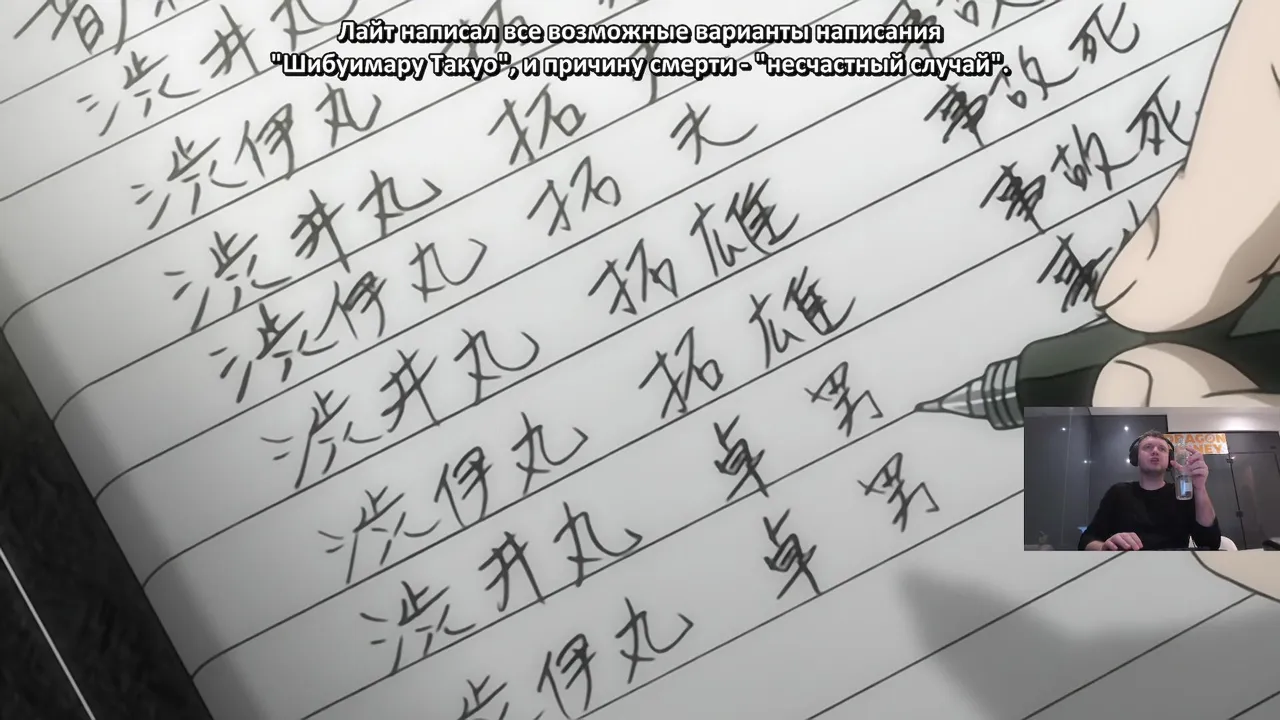 Лайт написал все возможные варианты написания
"Шибуимару Такуо", и причину смерти - "несчастный случай".
渋井丸
渋伊丸
渋井丸 拓
渋伊丸 拓夫 事故
渋井丸 拓雄 事故死
渋伊丸 拓雄 事故死
渋井丸 卓男 事
渋伊丸 卓男